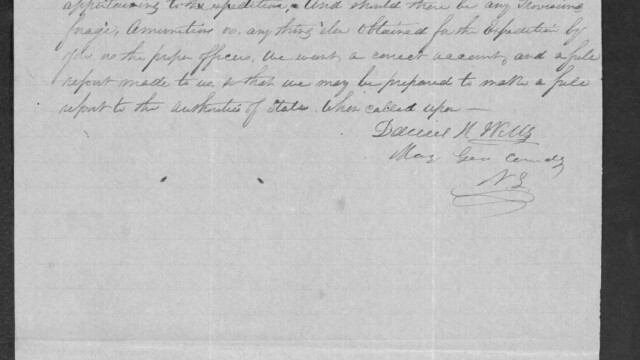 appertaining to the expedition, And should there be any Provisions
forage, Ammunition or any thing else Obtained for the Expedition by
you or the proper officers, We want a correct account, and a full
report made to us, so that we may be prepared to make a full
report to the authorities of State when called upon —
Daniel H Wells
Maj Gen Comdg
N. L